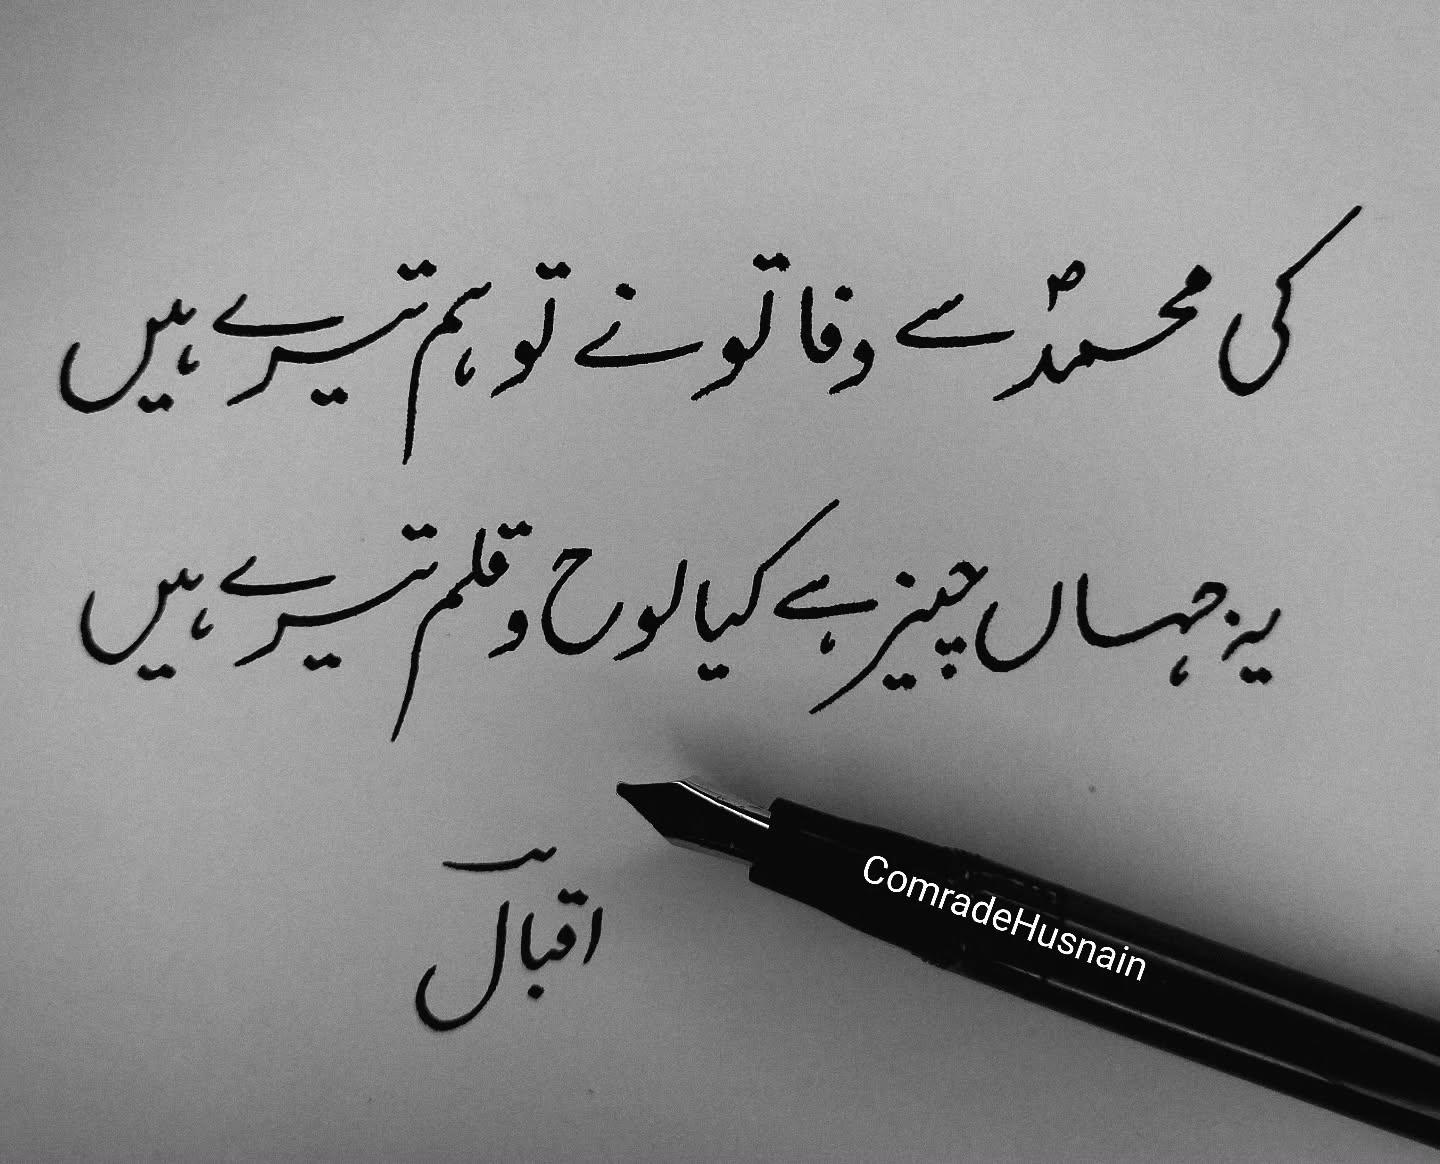 کی محمدؐ سے وفا تو نے تو ہم تیرے ہیں
یہ جہاں چیز ہے کیا لوح و قلم تیرے ہیں
اقبال
ComradeHusnain